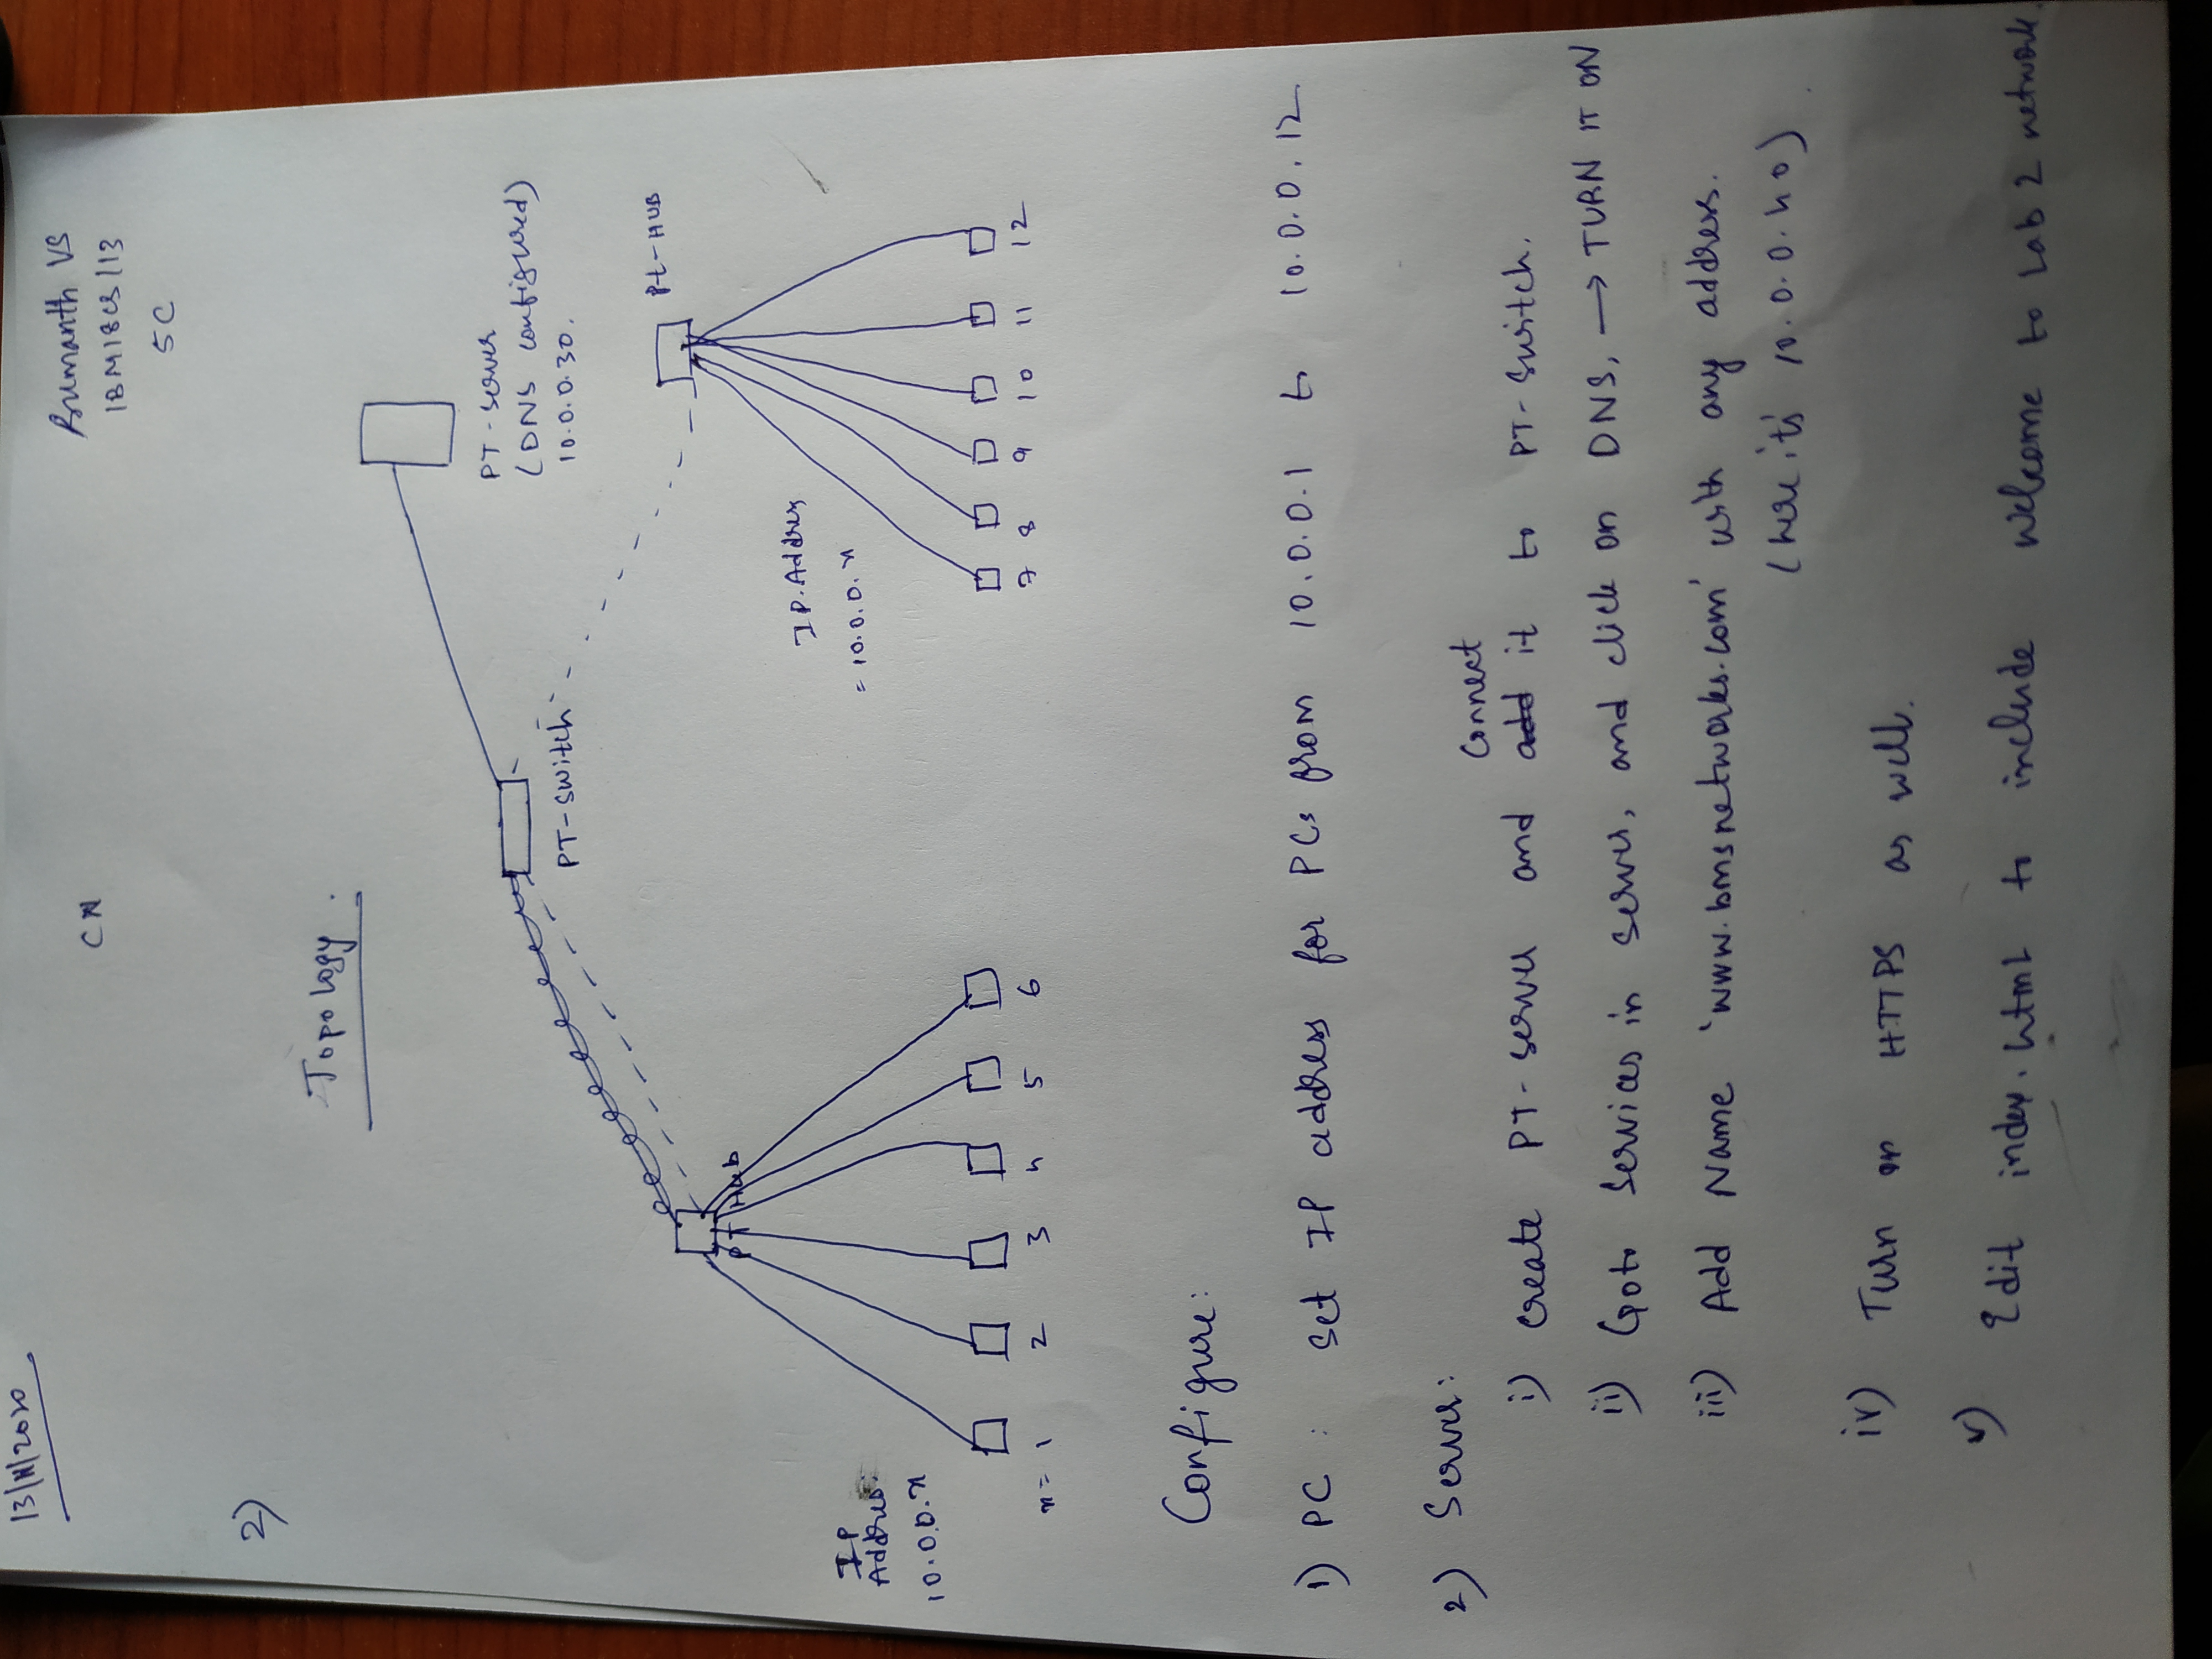 13/11/2020
CN
VS
1BM18CS113
5C
2)
Topology.
PT-Server
(DNS configured)
10.0.0.30.
PT-Switch
Pt-HUB
PT Hub
IP. Address
= 10.0.0.x
IP
Address.
10.0.0.x
x = 1 2 3 4 5 6
7 8 9 10 11 12
Configure:
1) PC : Set IP address for PCs from 10.0.0.1 to 10.0.0.12
2) Server:
Connect
i) Create PT-Server and add it to PT-Switch.
ii) Goto Services in server, and click on DNS, → TURN IT ON
iii) Add Name 'www.bmsnetworks.com' with any address.
(here it's 10.0.0.40)
iv) Turn on HTTPS as well.
v) Edit index.html to include Welcome to Lab 2 network.